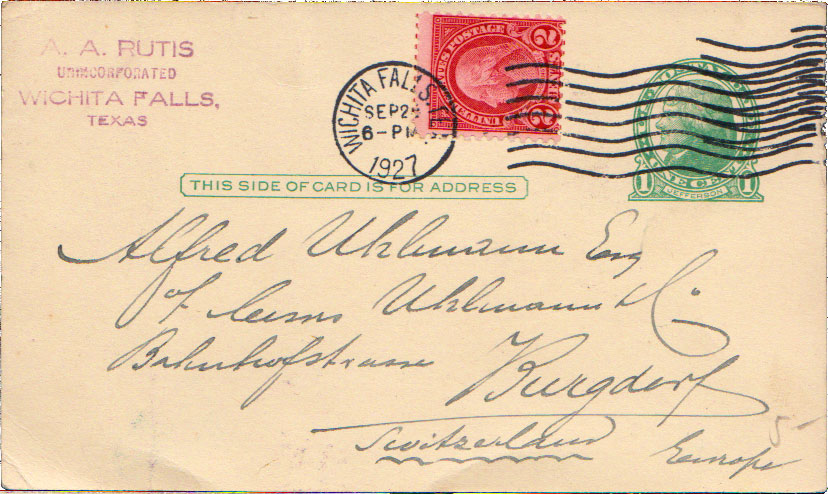 A. A. RUTIS
UNINCORPORATED
WICHITA FALLS,
TEXAS
WICHITA FALLS, T
SEP 2
6-PM
1927
STATES POSTAGE
2 2
U.S. POSTAL CARD
1 ONE CENT 1
JEFFERSON
THIS SIDE OF CARD IS FOR ADDRESS
Alfred Uhlmann Esq
of Uhlmann & Co.
Bahnhofstrasse Burgdorf
Switzerland Europe
5